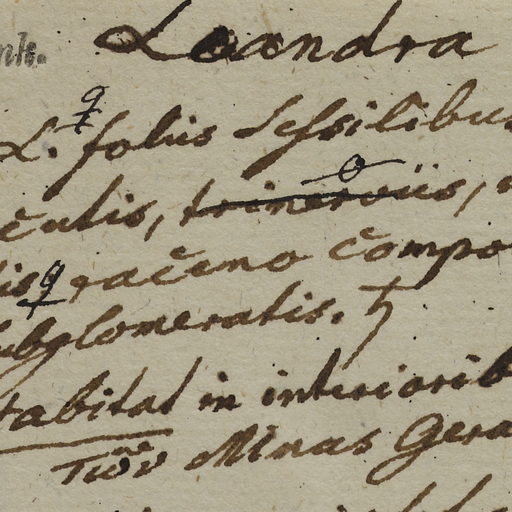 Leandra
L. foliis sessilibus
cutis, trinerviis,
racemo compo
ubglomeratis. ♄
Habitat in interiorib
Minas Gera